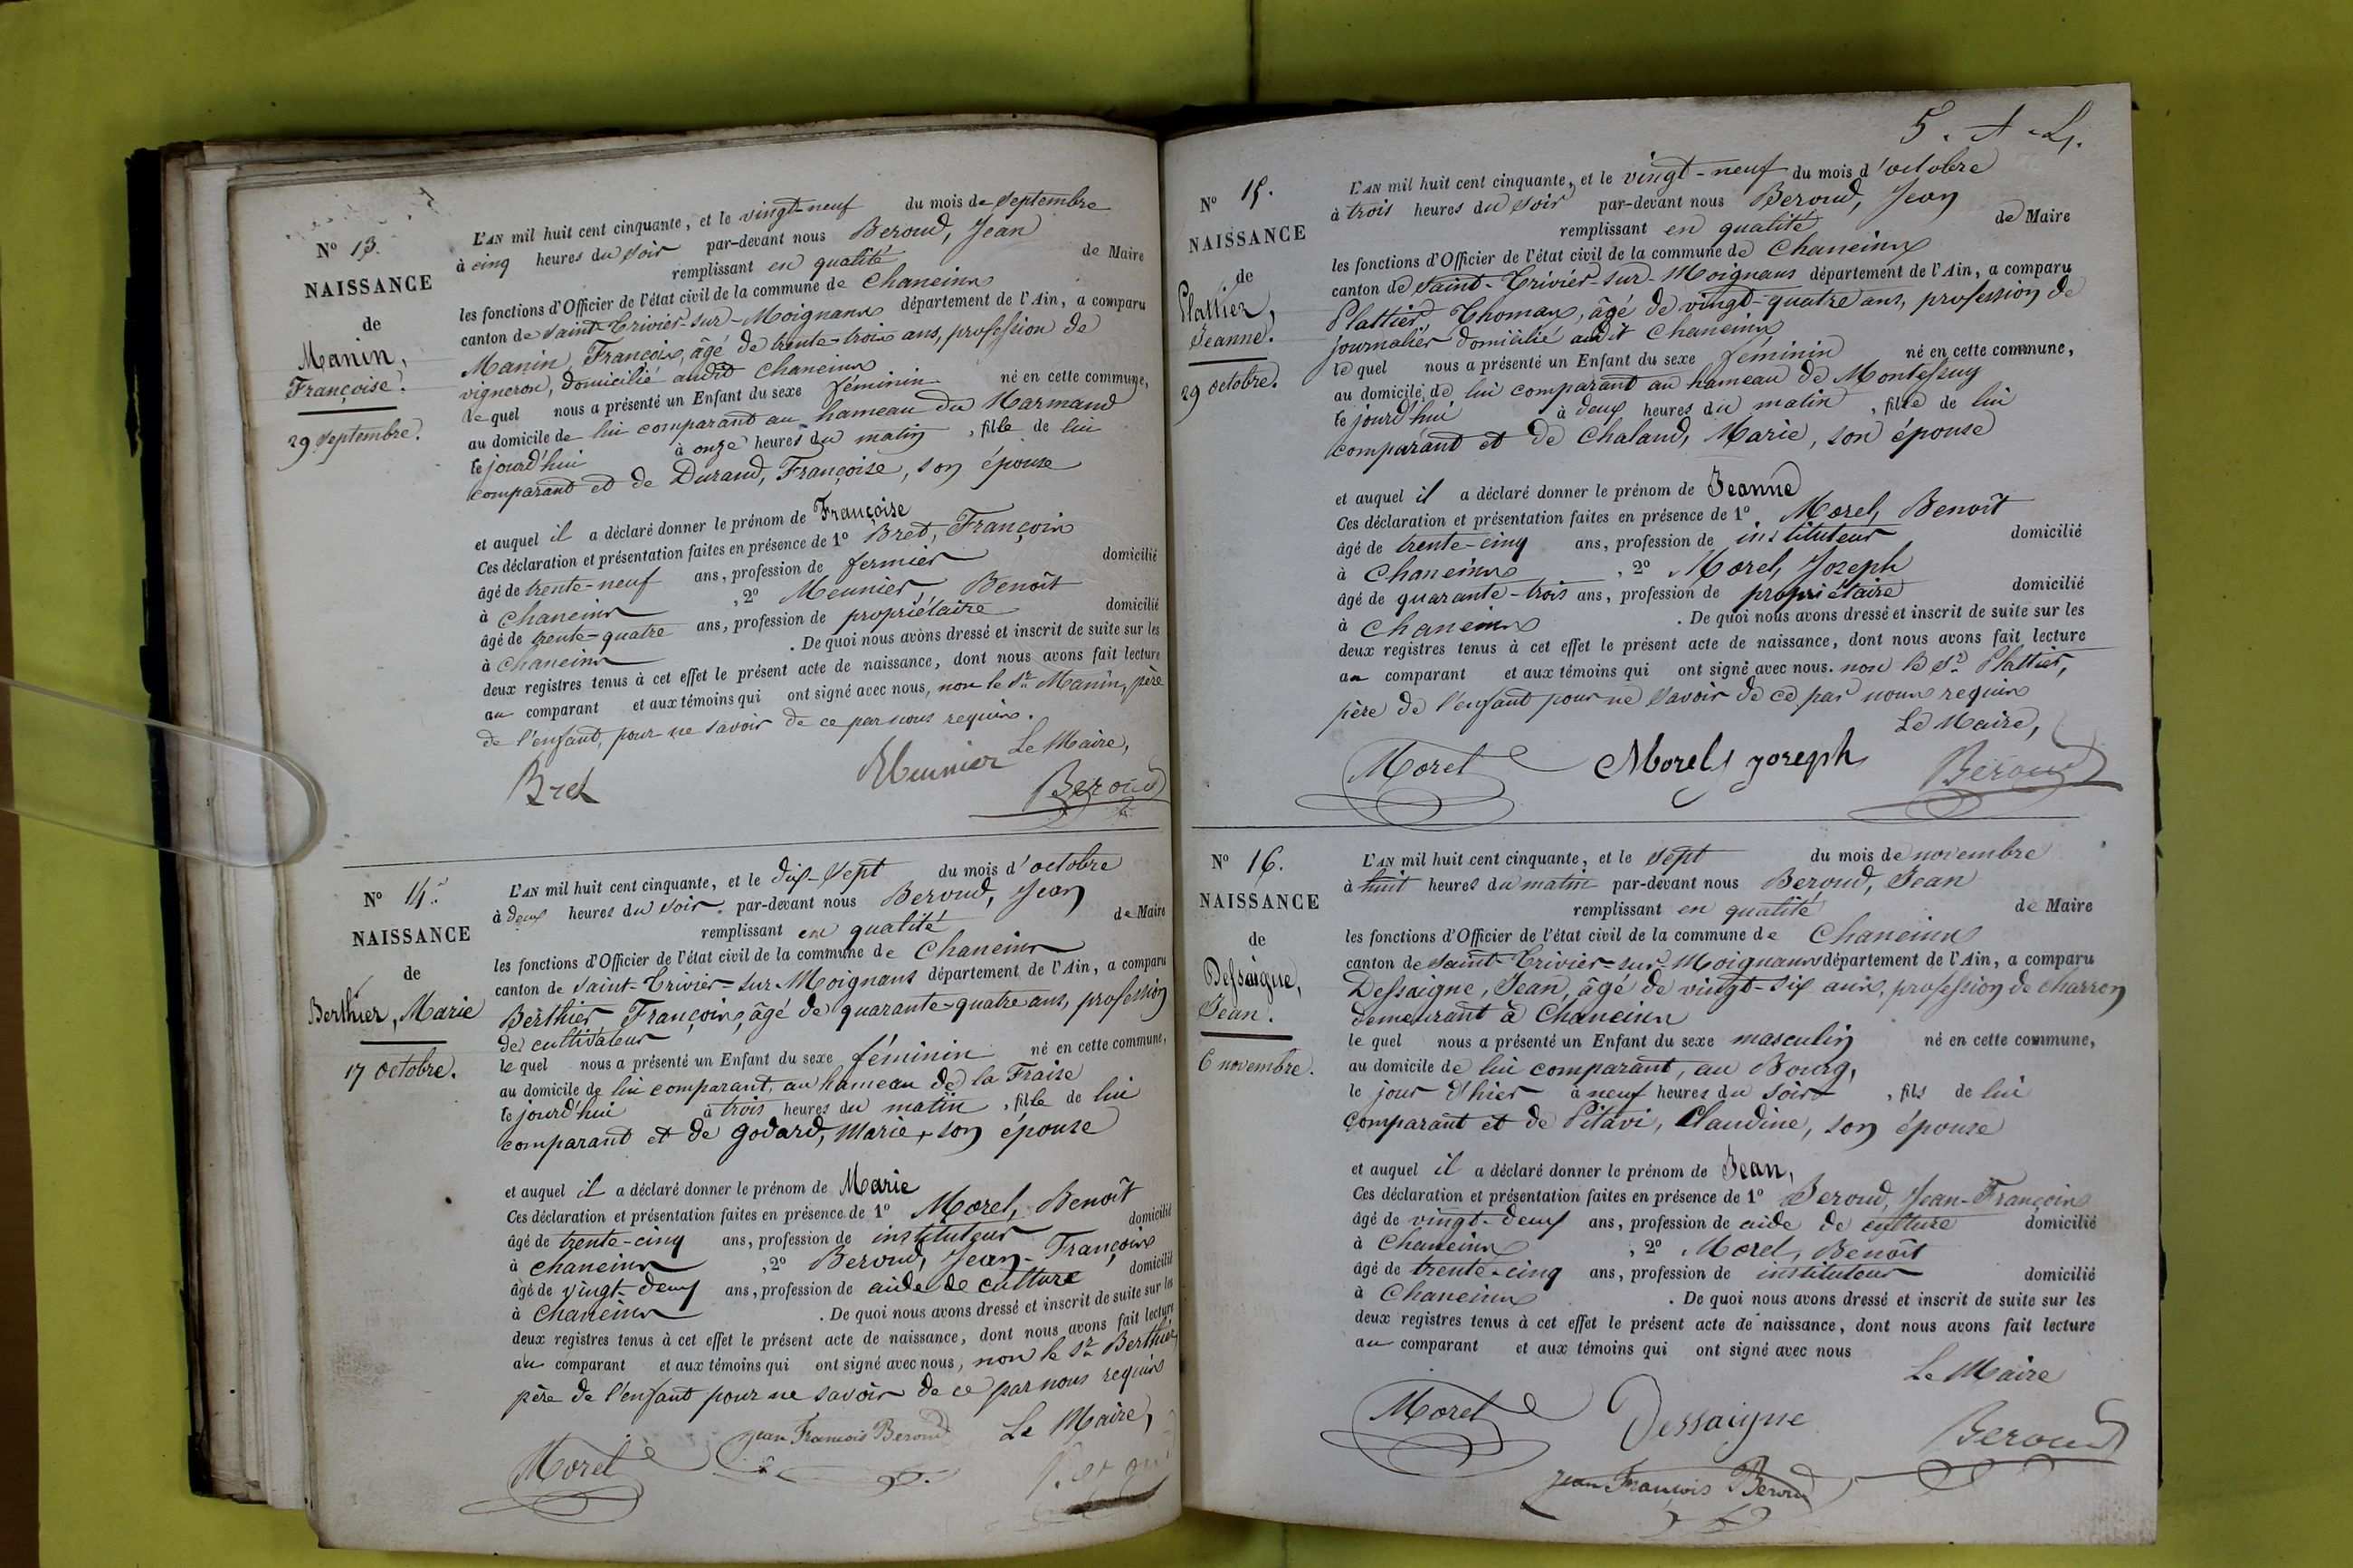 N° 13.
NAISSANCE
de
Manin,
Françoise.
29 Septembre.
L'AN mil huit cent cinquante, et le vingt-neuf du mois de Septembre
à cinq heures du soir par-devant nous Beroud, Jean
remplissant en qualité de Maire
les fonctions d'Officier de l'état civil de la commune de Chaneins
canton de Saint-Trivier-sur-Moignans département de l'Ain, a comparu
Manin, François, âgé de trente-trois ans, profession de
vigneron, domicilié audit Chaneins
lequel nous a présenté un Enfant du sexe féminin né en cette commune,
au domicile de lui comparant au hameau du Marmand
cejourd'hui à onze heures du matin, fille de lui
comparant et de Durand, Françoise, son épouse
et auquel il a déclaré donner le prénom de Françoise
Ces déclaration et présentation faites en présence de 1° Bret, François
âgé de trente-neuf ans, profession de fermier domicilié
à Chaneins, 2° Meunier, Benoît
âgé de trente-quatre ans, profession de propriétaire domicilié
à Chaneins. De quoi nous avons dressé et inscrit de suite sur les
deux registres tenus à cet effet le présent acte de naissance, dont nous avons fait lecture
au comparant et aux témoins qui ont signé avec nous, non le Sr. Manin, père
de l'enfant, pour ne savoir de ce par nous requis.
Le Maire,
Bret Meunier Beroud
N° 14.
NAISSANCE
de
Berthier, Marie
17 octobre.
L'AN mil huit cent cinquante, et le dix-sept du mois d'octobre
à deux heures du soir. par-devant nous Beroud, Jean
remplissant en qualité de Maire
les fonctions d'Officier de l'état civil de la commune de Chaneins
canton de Saint-Trivier-sur-Moignans département de l'Ain, a comparu
Berthier François, âgé de quarante-quatre ans, profession
de cultivateur
lequel nous a présenté un Enfant du sexe féminin né en cette commune,
au domicile de lui comparant, au hameau de la Fraise
cejourd'hui à trois heures du matin, fille de lui
comparant et de Godard, Marie, son épouse
et auquel il a déclaré donner le prénom de Marie
Ces déclaration et présentation faites en présence de 1° Morel, Benoît
âgé de trente-cinq ans, profession de instituteur domicilié
à Chaneins, 2° Beroud, Jean-François
âgé de vingt-deux ans, profession de aide de culture domicilié
à Chaneins. De quoi nous avons dressé et inscrit de suite sur les
deux registres tenus à cet effet le présent acte de naissance, dont nous avons fait lecture
au comparant et aux témoins qui ont signé avec nous, non le Sr. Berthier,
père de l'enfant pour ne savoir de ce par nous requis
Le Maire,
Morel Jean François Beroud
5. A L.
N° 15.
NAISSANCE
de
Plattier,
Jeanne.
29 octobre.
L'AN mil huit cent cinquante, et le vingt-neuf du mois d'octobre
à trois heures du soir par-devant nous Beroud, Jean
remplissant en qualité de Maire
les fonctions d'Officier de l'état civil de la commune de Chaneins
canton de Saint-Trivier-sur-Moignans département de l'Ain, a comparu
Plattier, Thomas, âgé de vingt-quatre ans, profession de
journalier domicilié audit Chaneins
lequel nous a présenté un Enfant du sexe féminin né en cette commune,
au domicile de lui comparant au hameau de Montessuy
cejourd'hui à deux heures du matin, fille de lui
comparant et de Chaland, Marie, son épouse
et auquel il a déclaré donner le prénom de Jeanne
Ces déclaration et présentation faites en présence de 1° Morel, Benoît
âgé de trente-cinq ans, profession de instituteur domicilié
à Chaneins, 2° Morel, Joseph
âgé de quarante-trois ans, profession de propriétaire domicilié
à Chaneins. De quoi nous avons dressé et inscrit de suite sur les
deux registres tenus à cet effet le présent acte de naissance, dont nous avons fait lecture
au comparant et aux témoins qui ont signé avec nous. non le Sr. Plattier,
père de l'enfant pour ne savoir de ce par nous requis
Le Maire,
Morel Morel joseph Beroud
N° 16.
NAISSANCE
de
Dessaigne,
Jean.
6 novembre.
L'AN mil huit cent cinquante, et le sept du mois de novembre
à huit heures du matin par-devant nous Beroud, Jean
remplissant en qualité de Maire
les fonctions d'Officier de l'état civil de la commune de Chaneins
canton de Saint-Trivier-sur-Moignans département de l'Ain, a comparu
Dessaigne, Jean, âgé de vingt-six ans, profession de charron
demeurant à Chaneins
lequel nous a présenté un Enfant du sexe masculin né en cette commune,
au domicile de lui comparant, au Bourg,
le jour d'hier à neuf heures du soir, fils de lui
comparant et de Pitavi, Claudine, son épouse
et auquel il a déclaré donner le prénom de Jean,
Ces déclaration et présentation faites en présence de 1° Beroud, Jean-François
âgé de vingt-deux ans, profession de aide de culture domicilié
à Chaneins, 2° Morel, Benoît
âgé de trente-cinq ans, profession de instituteur domicilié
à Chaneins. De quoi nous avons dressé et inscrit de suite sur les
deux registres tenus à cet effet le présent acte de naissance, dont nous avons fait lecture
au comparant et aux témoins qui ont signé avec nous
Le Maire
Morel Dessaigne Beroud
jean François Beroud